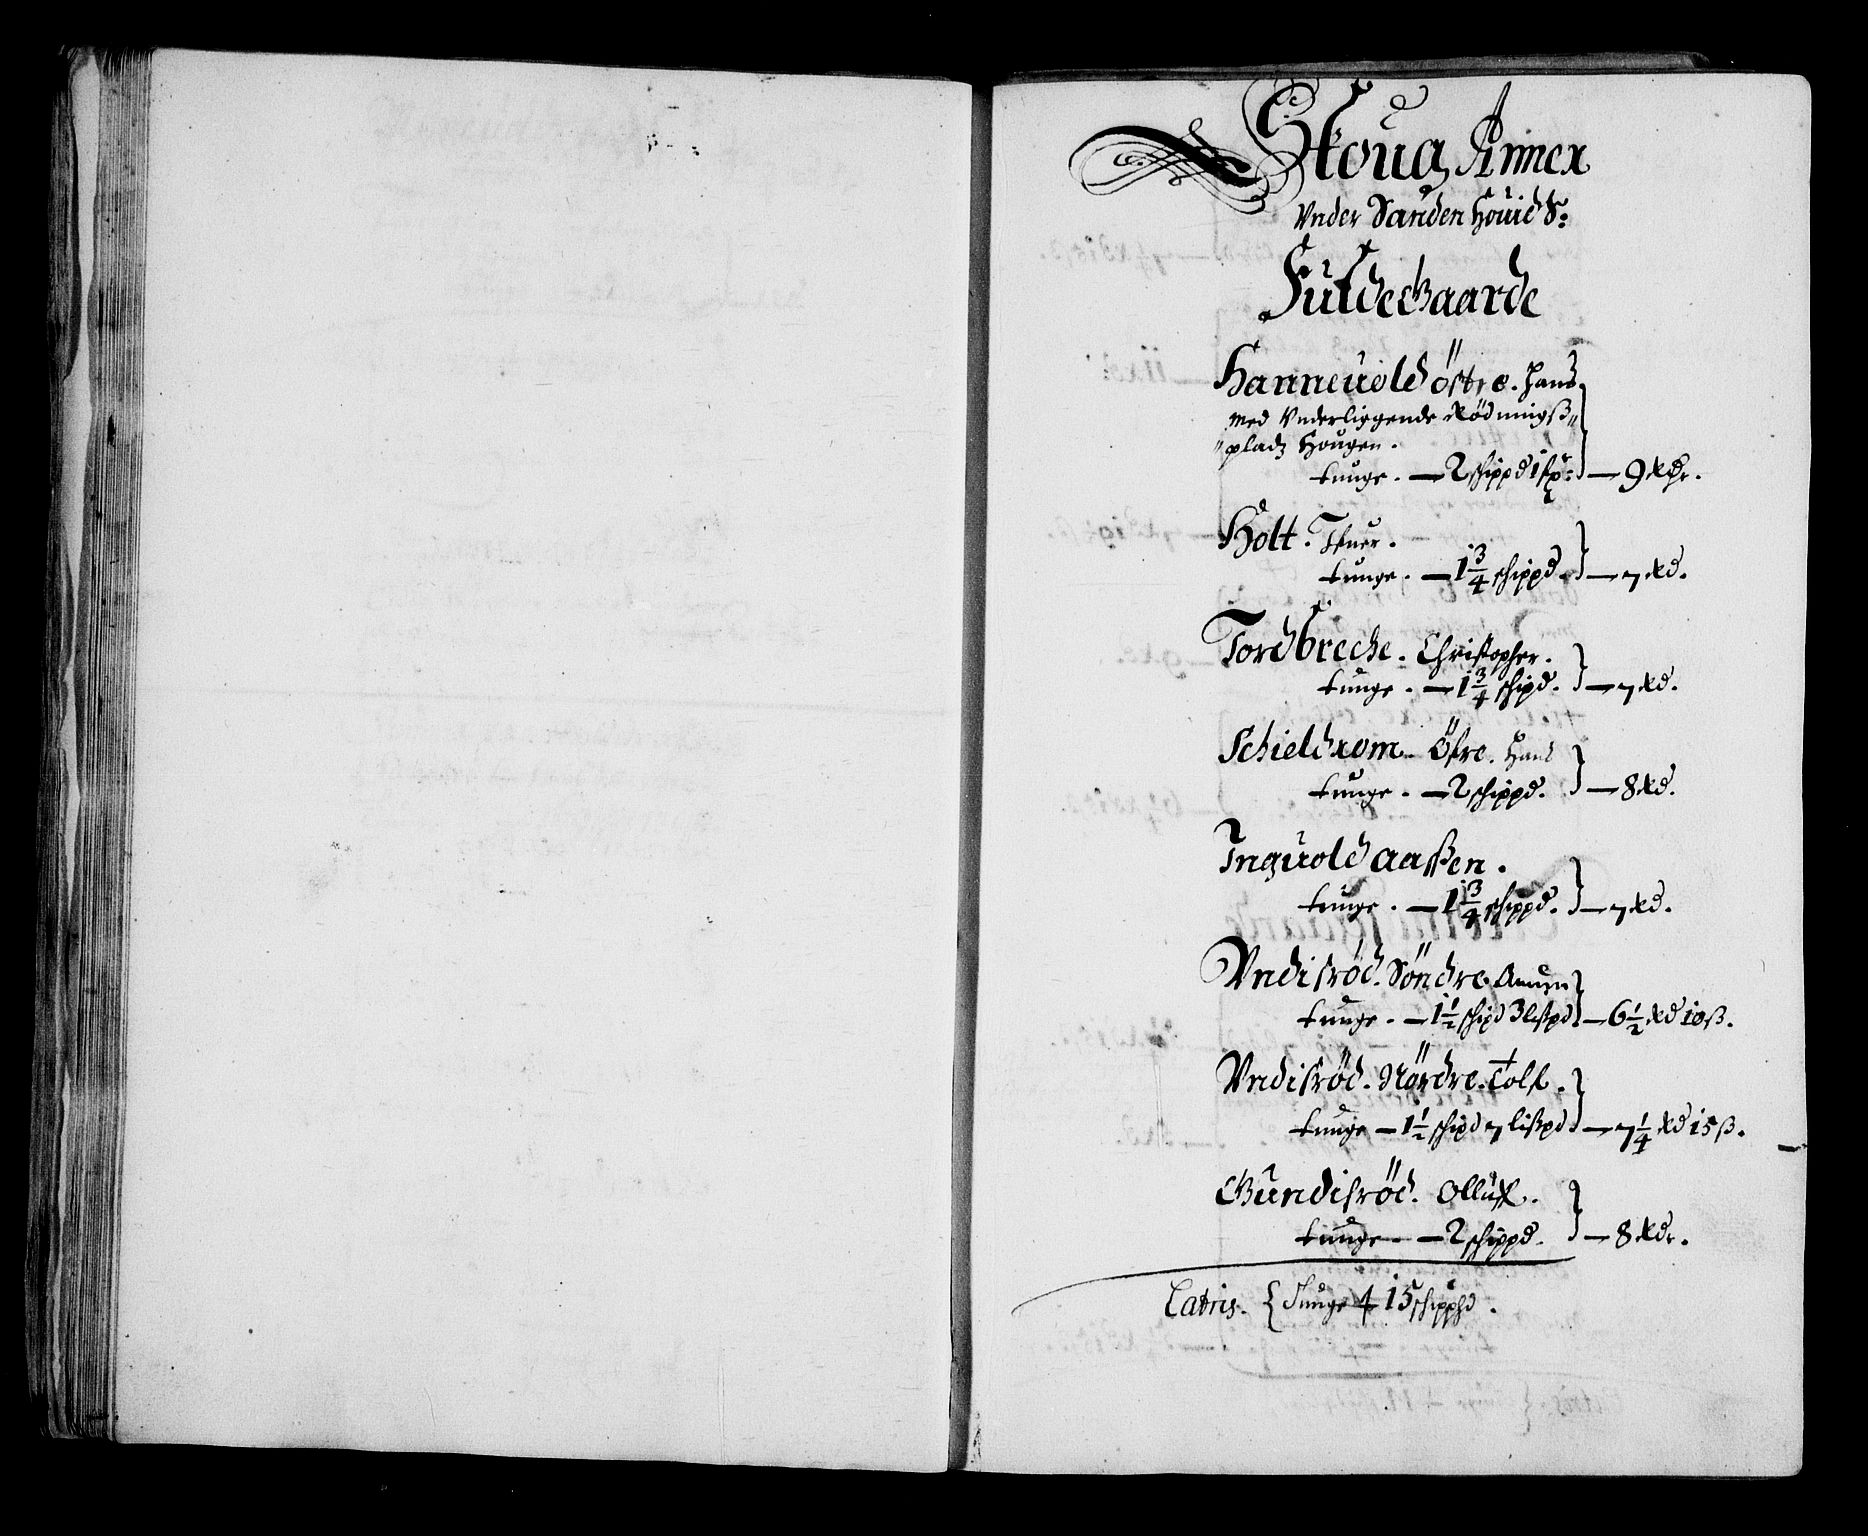 Skoug Annex
Vnder Sanden Houid S:
Fulde Gaarde
Hanneuold östre. Hans
med Vnderliggende Rödnings
pladz Hougen.
tunge. — 2 schippd 1 — 9 Rdr.
Holt. Ifuer.
tunge. — 1¾ schippd. — 7 Rd.
Tordbreche. Christopher.
tunge. — 1¾ schipd. — 7 Rd.
Schieldrom. Öfre. Hans
tunge. — 2 schippd. — 8 Rd.
Inguold aaßen.
tunge. — 1¾ schippd. — 7 Rd.
Vndisröd. Söndre.
tunge. — 1½ schipd 3 lißpd — 6½ Rd 10 ß.
Vndisröd. Nördre. Tolf.
tunge — 1½ schipd 7 lißpd — 7¼ Rd 15 ß.
Gundisröd. Olluff.
tunge — 2 schippd. — 8 Rdr.
Latris. { Tunge + 15 schipphd.